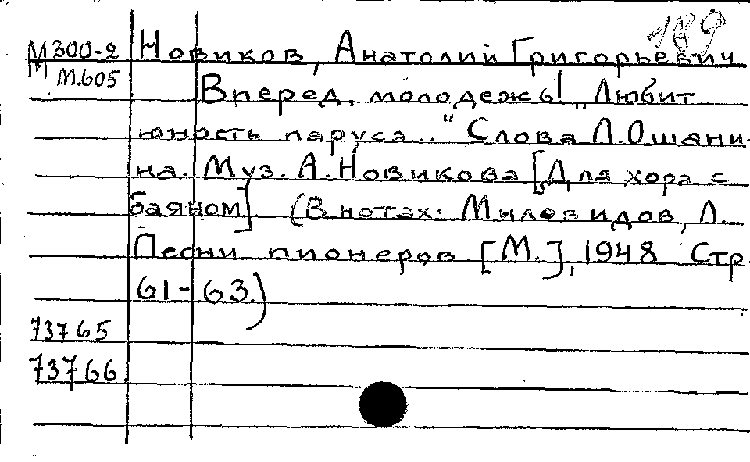 189
М300-2 Новиков, Анатолий Григорьевич
М М.605 Вперед, молодежь! „Любит
юность паруса.." Слова Л.Ошани-
на. Муз. А.Новикова [Для хора с
баяном] (В нотах: Миловидов, Л.
Песни пионеров [М.], 1948 Стр.
61-63.)
73765
73766